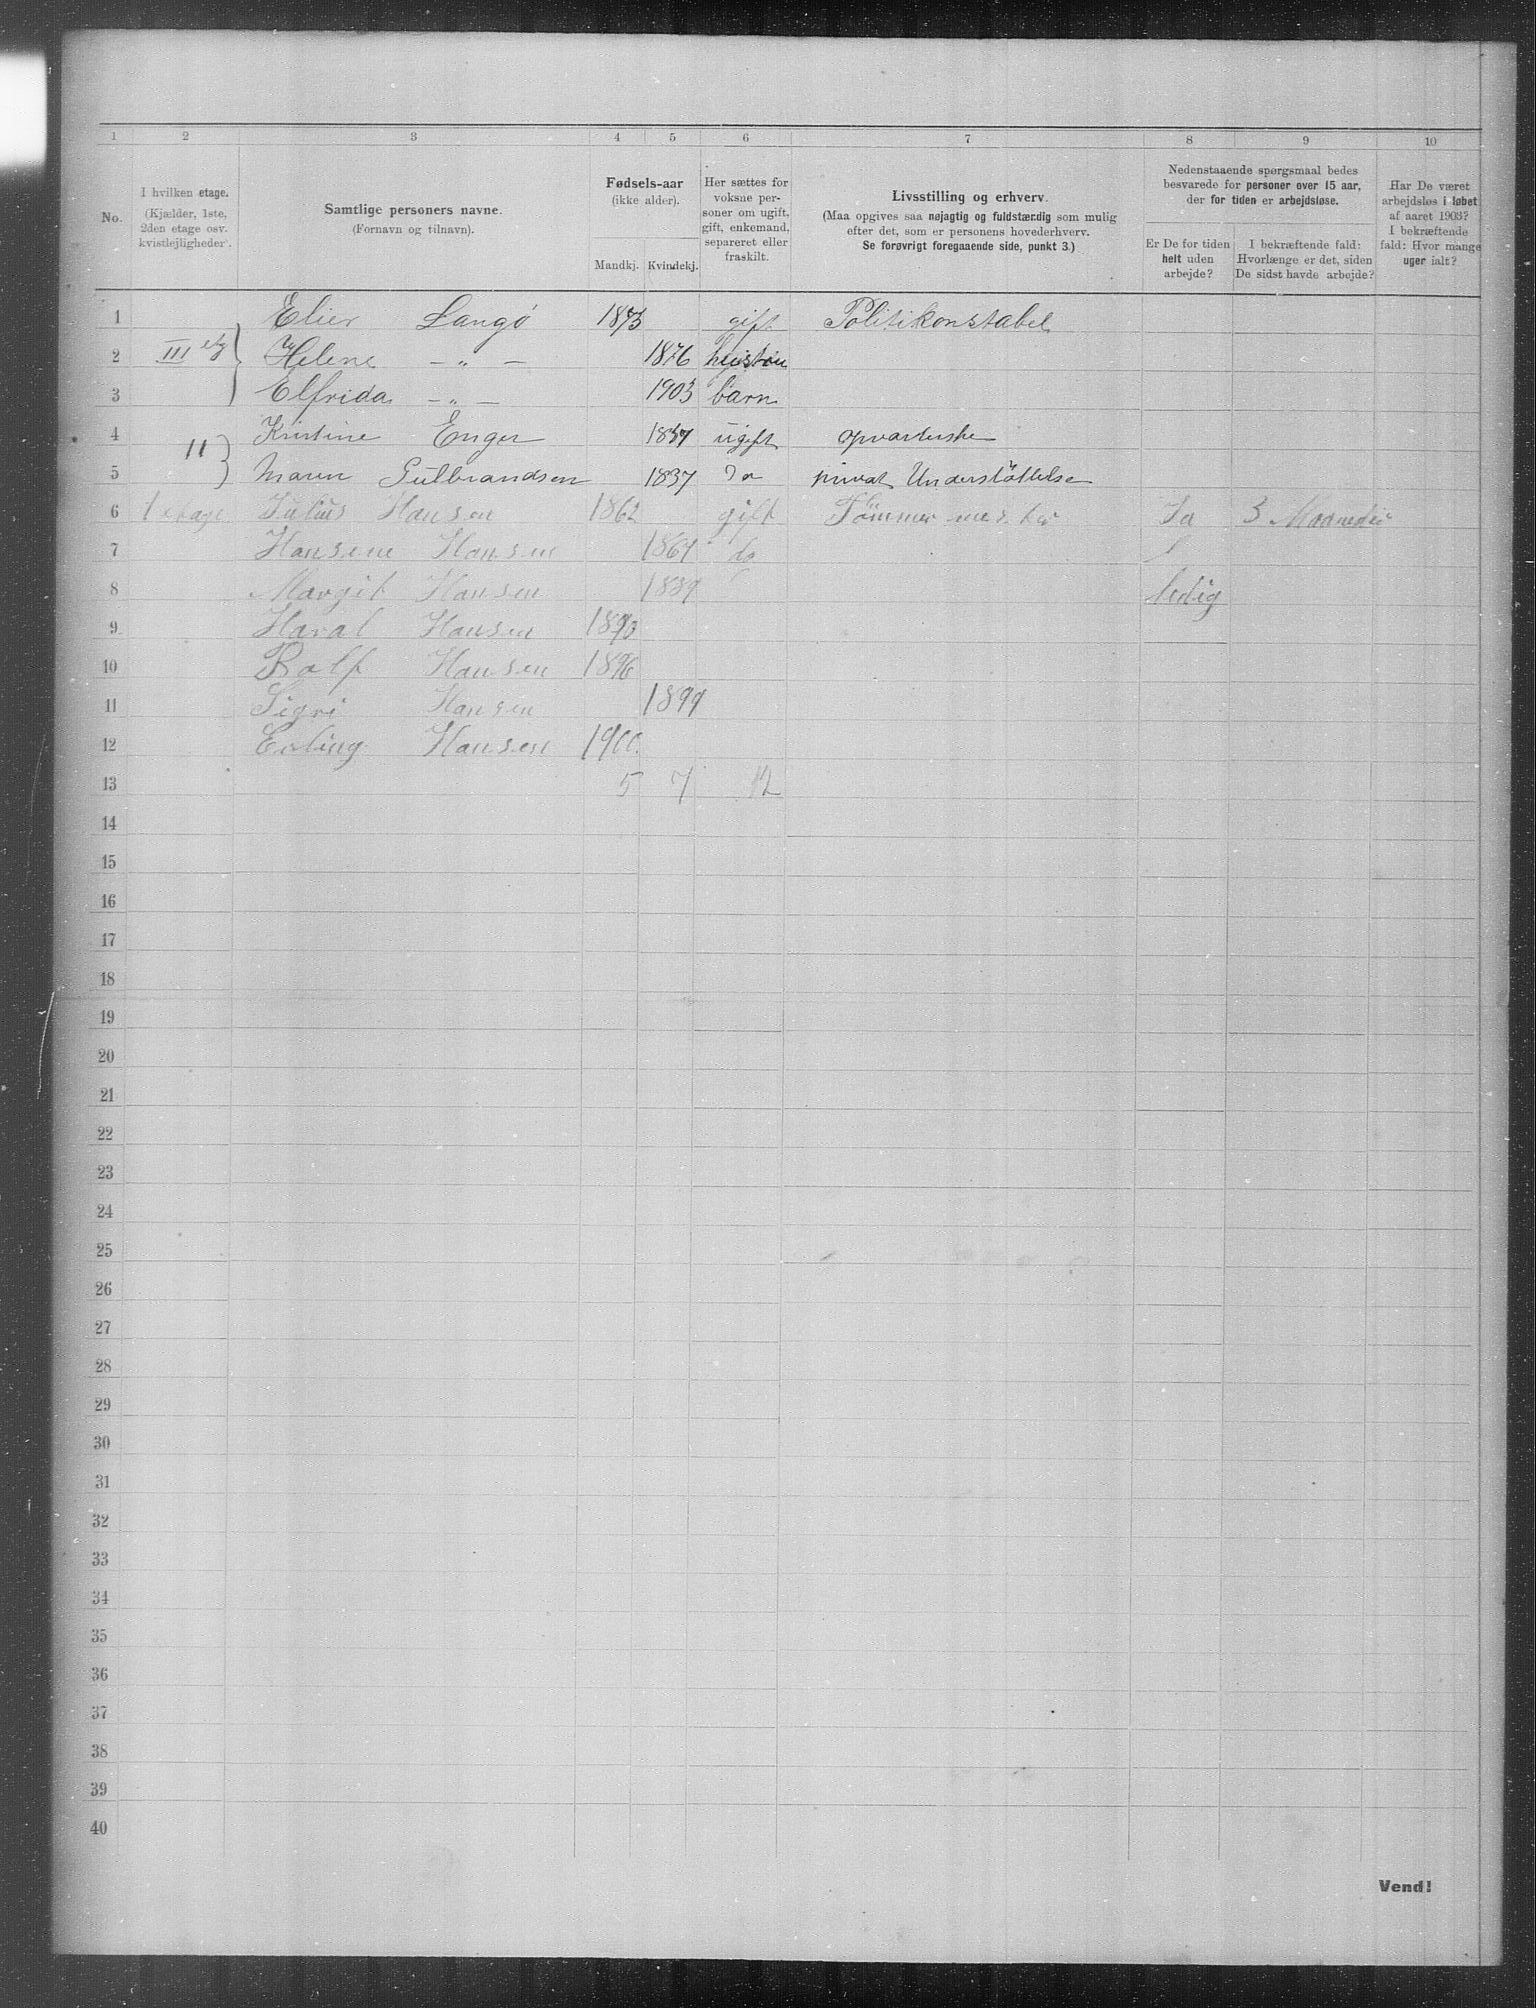 1 2 3 4 5 6 7 8 9 10
No.
I hvilken etage.
(Kjælder, 1ste,
2den etage osv.
kvistlejligheder).
Samtlige personers navne.
(Fornavn og tilnavn).
Fødsels-aar
(ikke alder).
Mandkj. Kvindekj.
Her sættes for
voksne per-
soner om ugift,
gift, enkemand,
separeret eller
fraskilt.
Livsstilling og erhverv.
(Maa opgives saa nøjagtig og fuldstændig som mulig
efter det, som er personens hovederhverv.
Se forøvrigt foregaaende side, punkt 3.)
Nedenstaaende spørgsmaal bedes
besvarede for personer over 15 aar,
der for tiden er arbejdsløse.
Er De for tiden
helt uden
arbejde?
I bekræftende fald:
Hvorlænge er det, siden
De sidst havde arbejde?
Har De været
arbejdsløs i løbet
af aaret 1903?
I bekræftende
fald: Hvor mange
uger ialt?
1 Elier Langö 1873 gift Politikonstabel
2 III etg Helene – " – 1876 hustru
3 Elfrida – " – 1903 barn
4 II Kristine Enger 1847 ugift opvarterske
5 Maren Gulbrandsen 1837 Do privat Understöttelse
6 1 etage Julius Hansen 1862 gift Tömmermester Ja 3 Maaneder
7 Hansene Hansen 1867 do
8 Margit Hansen 1889 ledig
9 Haral Hansen 1893
10 Rolf Hansen 1896
11 Sigri Hansen 1899
12 Erling Hansen 1900
13 5 7 12
14
15
16
17
18
19
20
21
22
23
24
25
26
27
28
29
30
31
32
33
34
35
36
37
38
39
40
Vend!